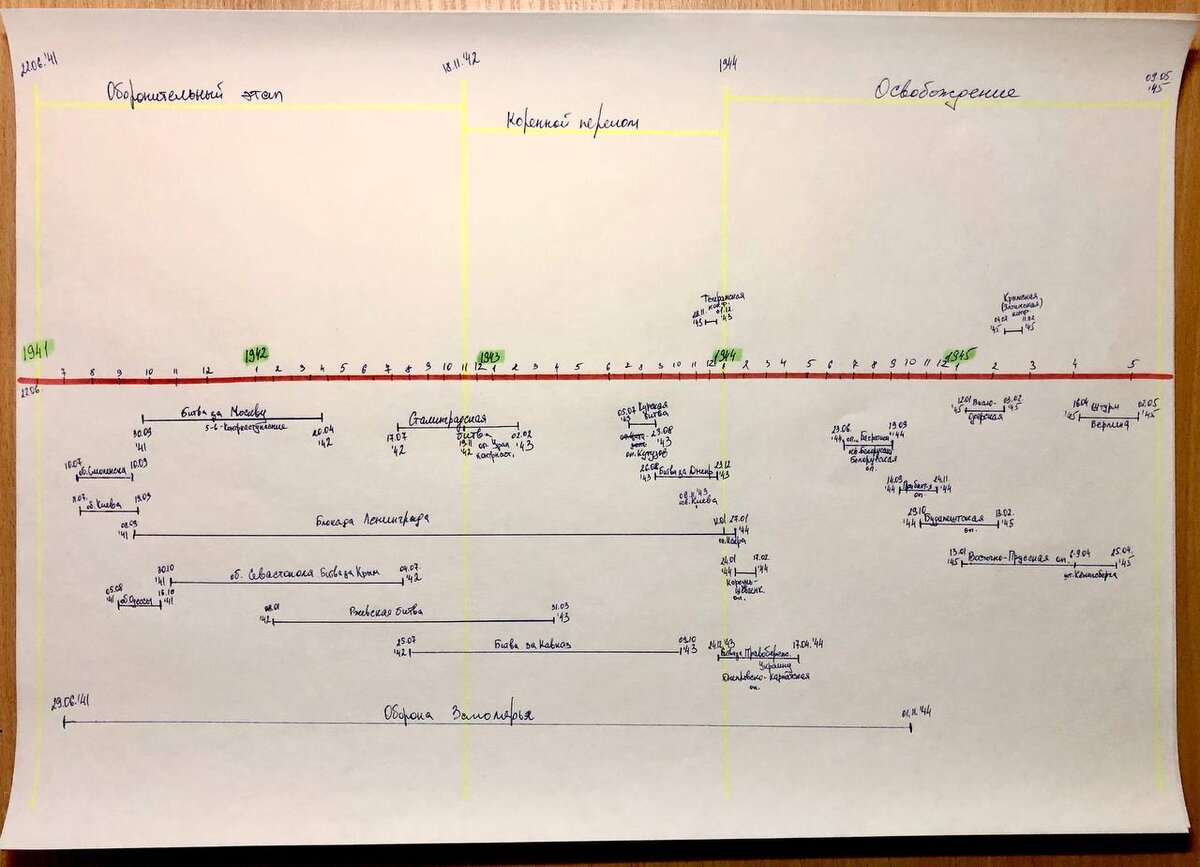 22.06.'41
18.11.'42
1944
09.05
'45
Оборонительный этап
Коренной перелом
Освобождение
Тегеранская
конф.
28.11. 01.12.
'43 '43
Крымская
(Ялтинская)
конф
04.02 11.02
'45 '45
1941 1942 1943 1944 1945
7 8 9 10 11 12 1 2 3 4 5 6 7 8 9 10 11 12 1 2 3 4 5 6 7 8 9 10 11 12 1 2 3 4 5 6 7 8 9 10 11 12 1 2 3 4 5
22.06.
Битва за Москву
5-6 - контрнаступление
30.09
'41
20.04
'42
Сталинградская
битва
17.07
'42
19.11
'42
оп. Уран
контрнаст.
02.02
'43
05.07
'43
Курская
битва
23.08
'43
оп. Кутузов
23.06
'44
оп. Багратион
Белорусская
оп.
19.09
'44
12.01
'45
Висло-
Одерская
03.02
'45
16.04
'45
Штурм
Берлина
02.05
'45
10.07
об. Смоленска
10.09
11.07.
об. Киева
19.09
26.08
'43
Битва за Днепр
23.12
'43
'43
ов. Киева
14.09
'44
Прибалт-я
оп.
24.11
'44
08.09
'41
Блокада Ленинграда
27.01
'44
29.10
'44
Будапештская
оп.
13.02
'45
30.10
'41
об. Севастополя. Битва за Крым
04.07.
'42
24.01
'44
17.02.
'44
Корсунь-
оп.
13.01
'45
Восточно-Прусская оп.
6-9.04
шт. Кёнигсберга
25.04.
'45
05.08
'41
об. Одессы
16.10
'41
08.01
'42
Ржевская битва
31.03
'43
25.07
'42
Битва за Кавказ
09.10
'43
24.12.'43
Битва за Правобережн.
Украину
Днепровско-Карпатская
оп.
17.04.'44
29.06.'41
Оборона Заполярья
01.11.'44